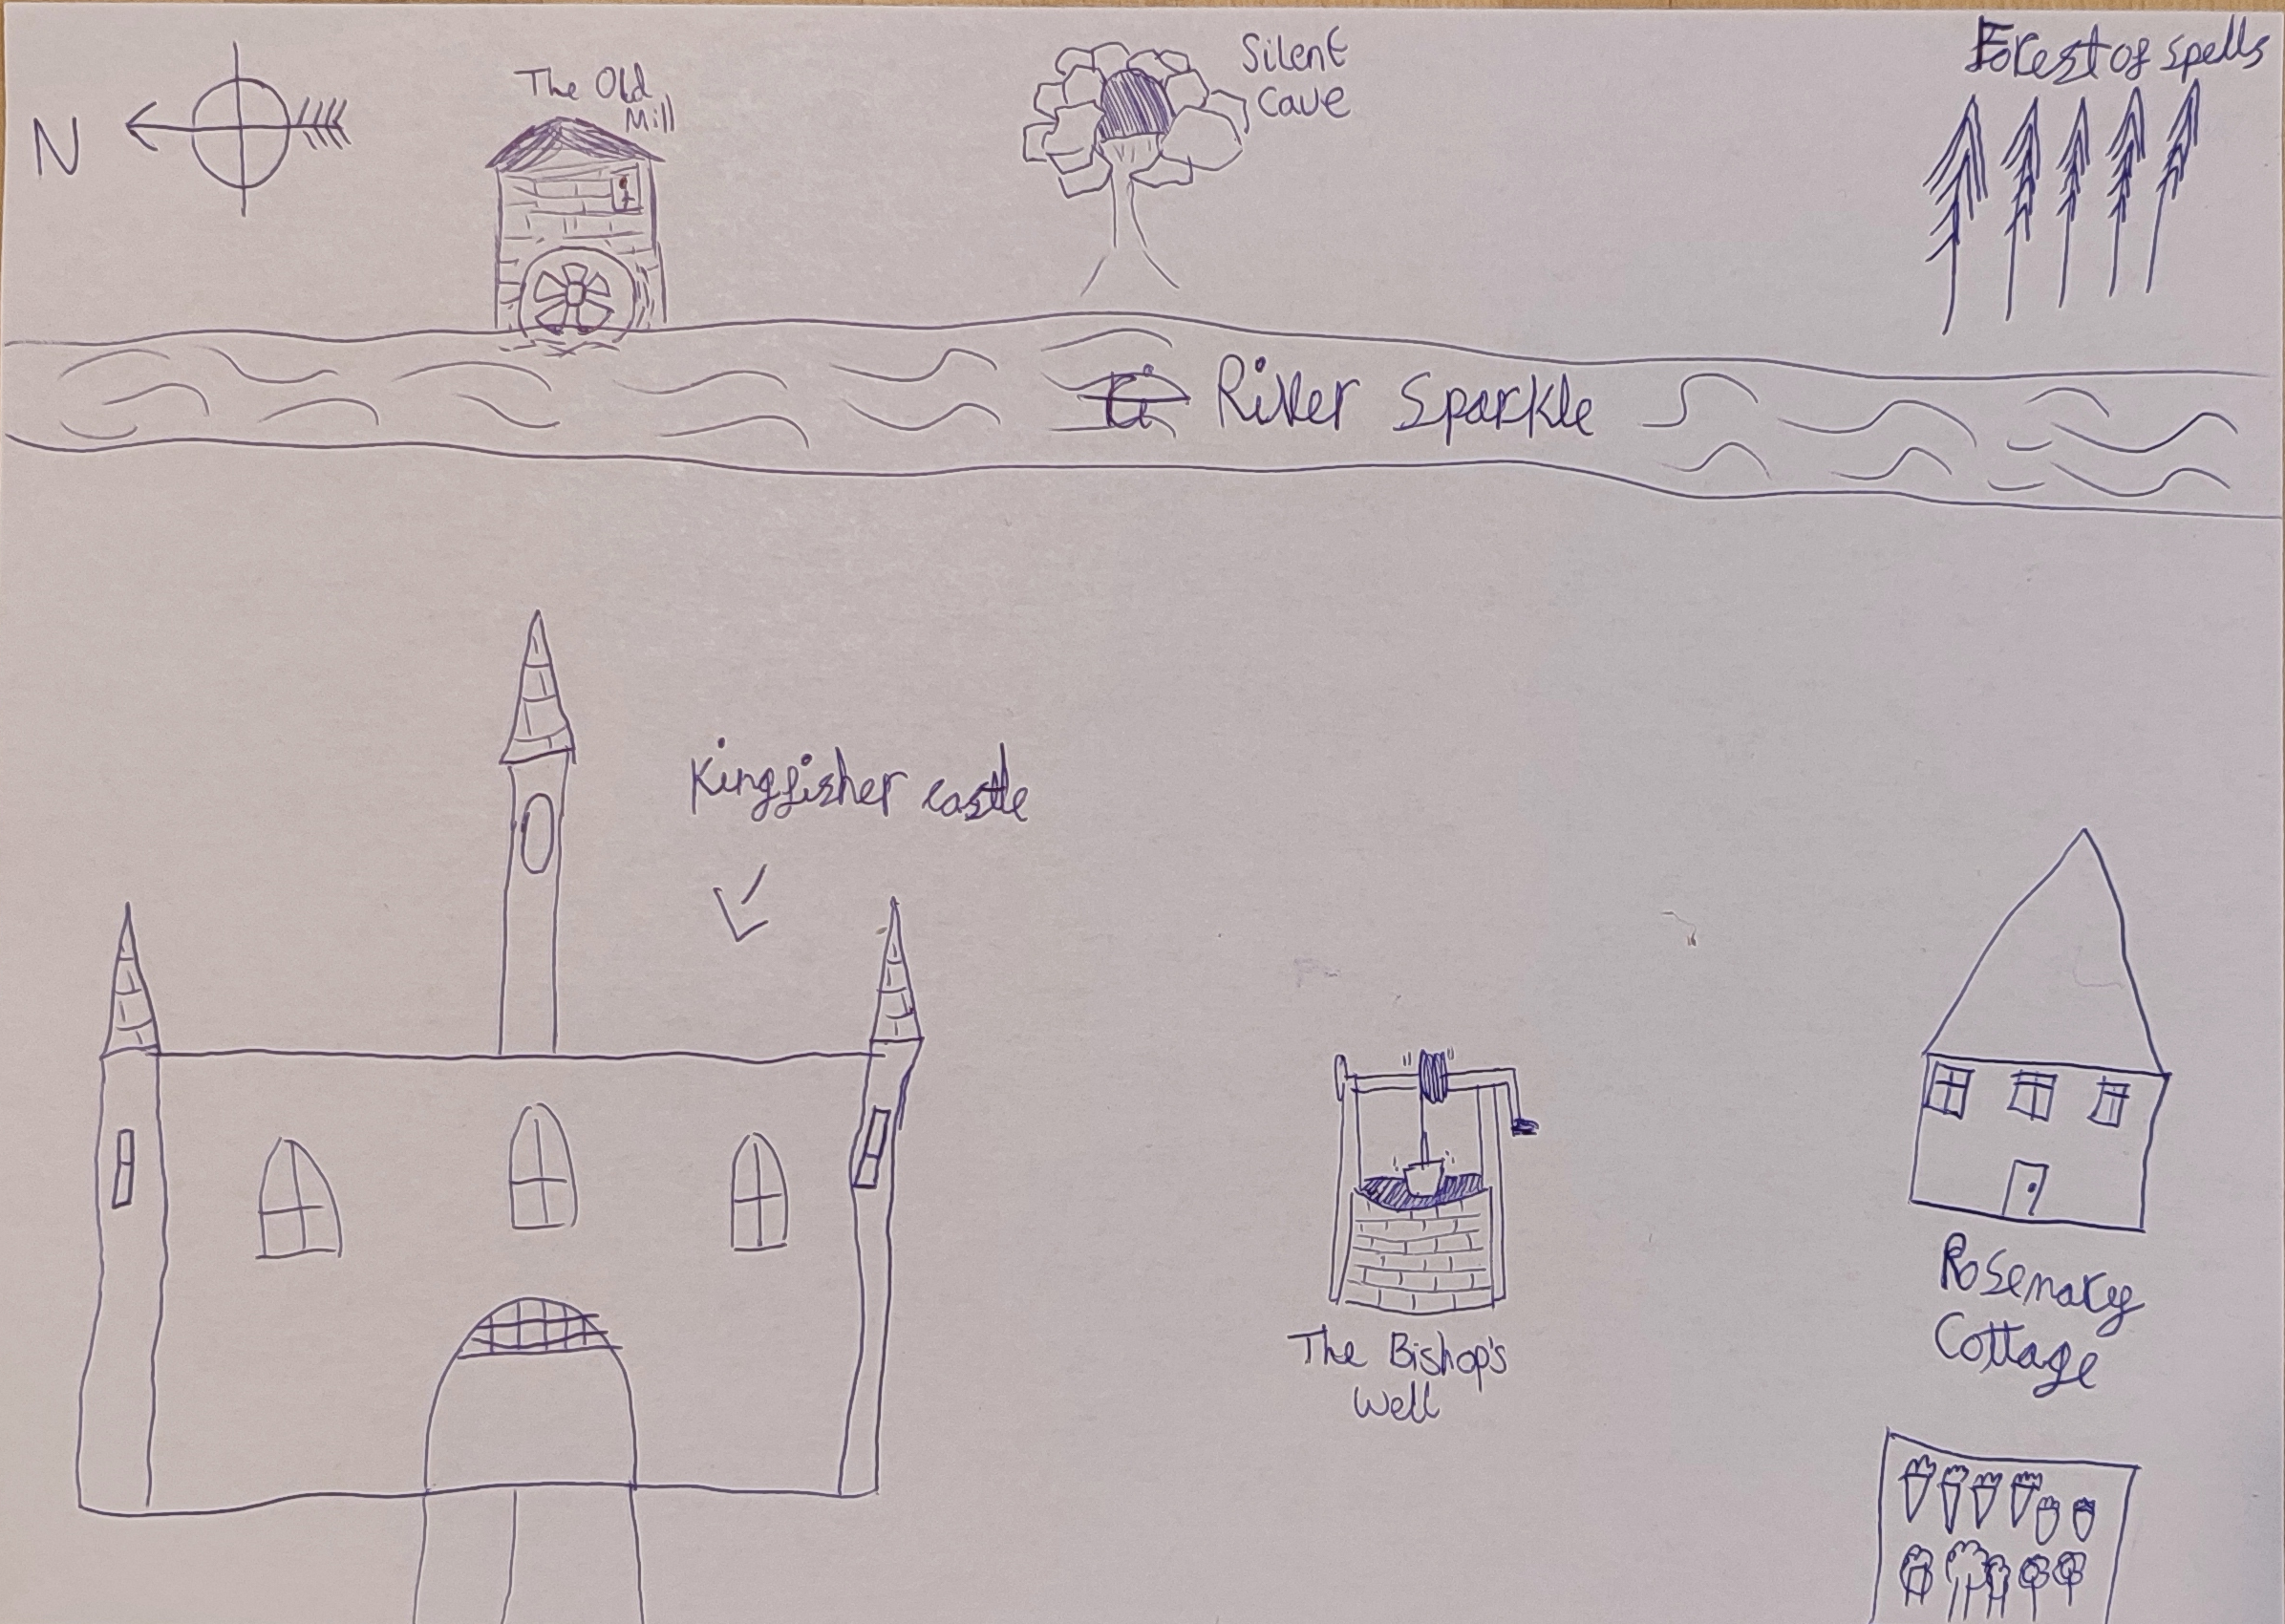 N
The Old
Mill
Silent
Cave
Forest of Spells
River Sparkle
Kingfisher castle
The Bishop's
Well
Rosemary
Cottage